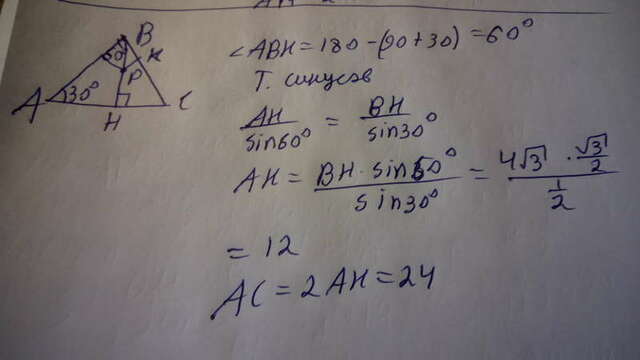 B
K
60°
P
A
30°
H
C
∠ABH = 180 − (90 + 30) = 60°
Т. синусов
AH/sin60° = BH/sin30°
AH = BH · sin60°/sin30° = 4√3 · √3/2 / 1/2
= 12
AC = 2AH = 24